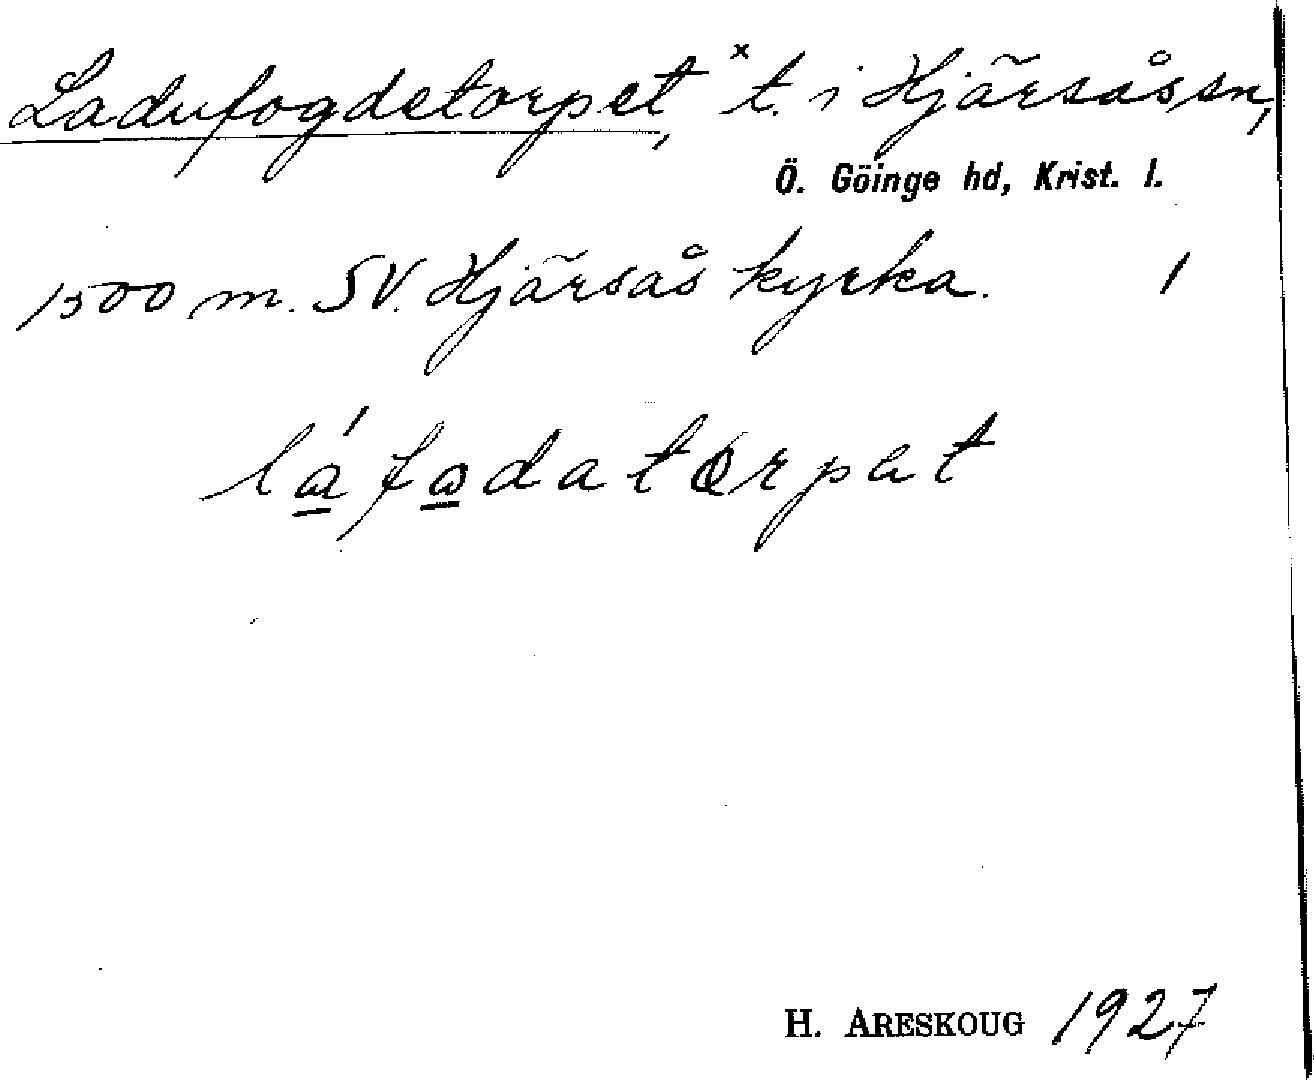 Ladufogdetorpet, ˣt. i Hjärsåssn,
Ö. Göinge hd, Krist. l.
1500 m. SV. Hjärsås kyrka. 1
láfadatorpat
H. ARESKOUG 1927